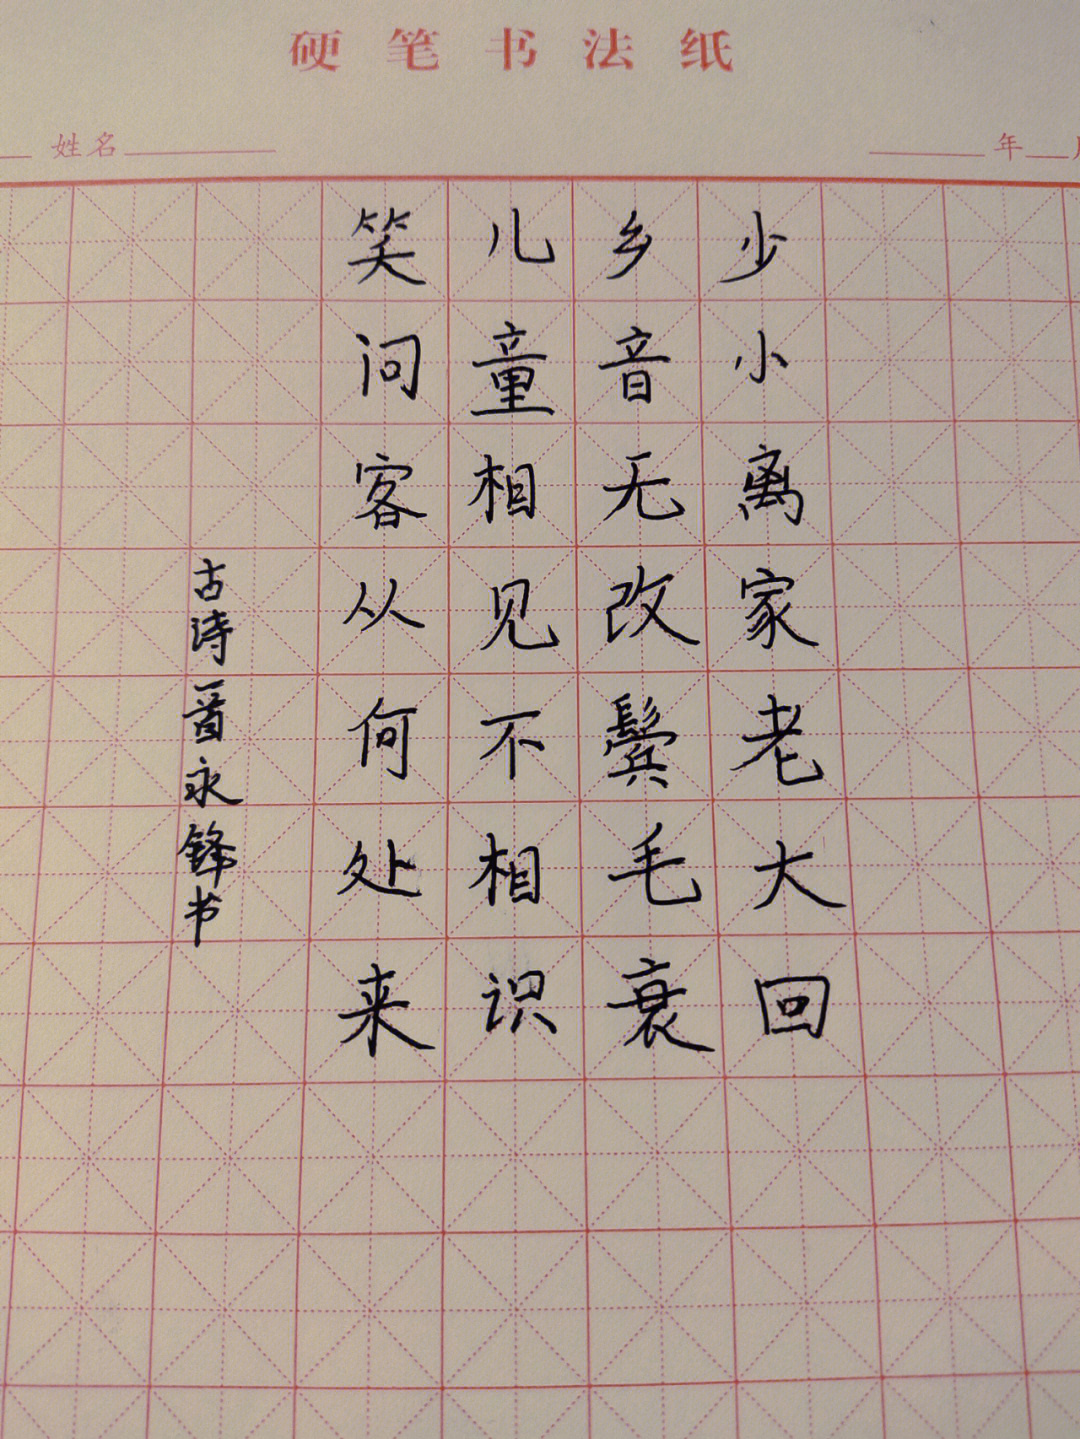 硬笔书法纸
姓名
年
少小离家老大回
乡音无改鬓毛衰
儿童相见不相识
笑问客从何处来
古诗一首永锋书